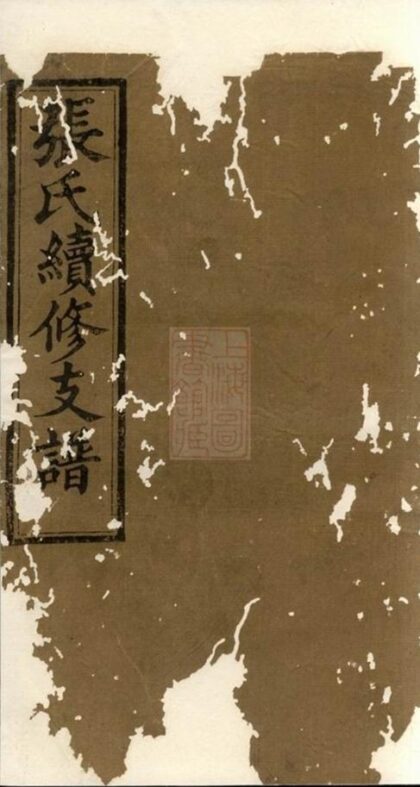 張氏續修支譜
上海圖
書館藏